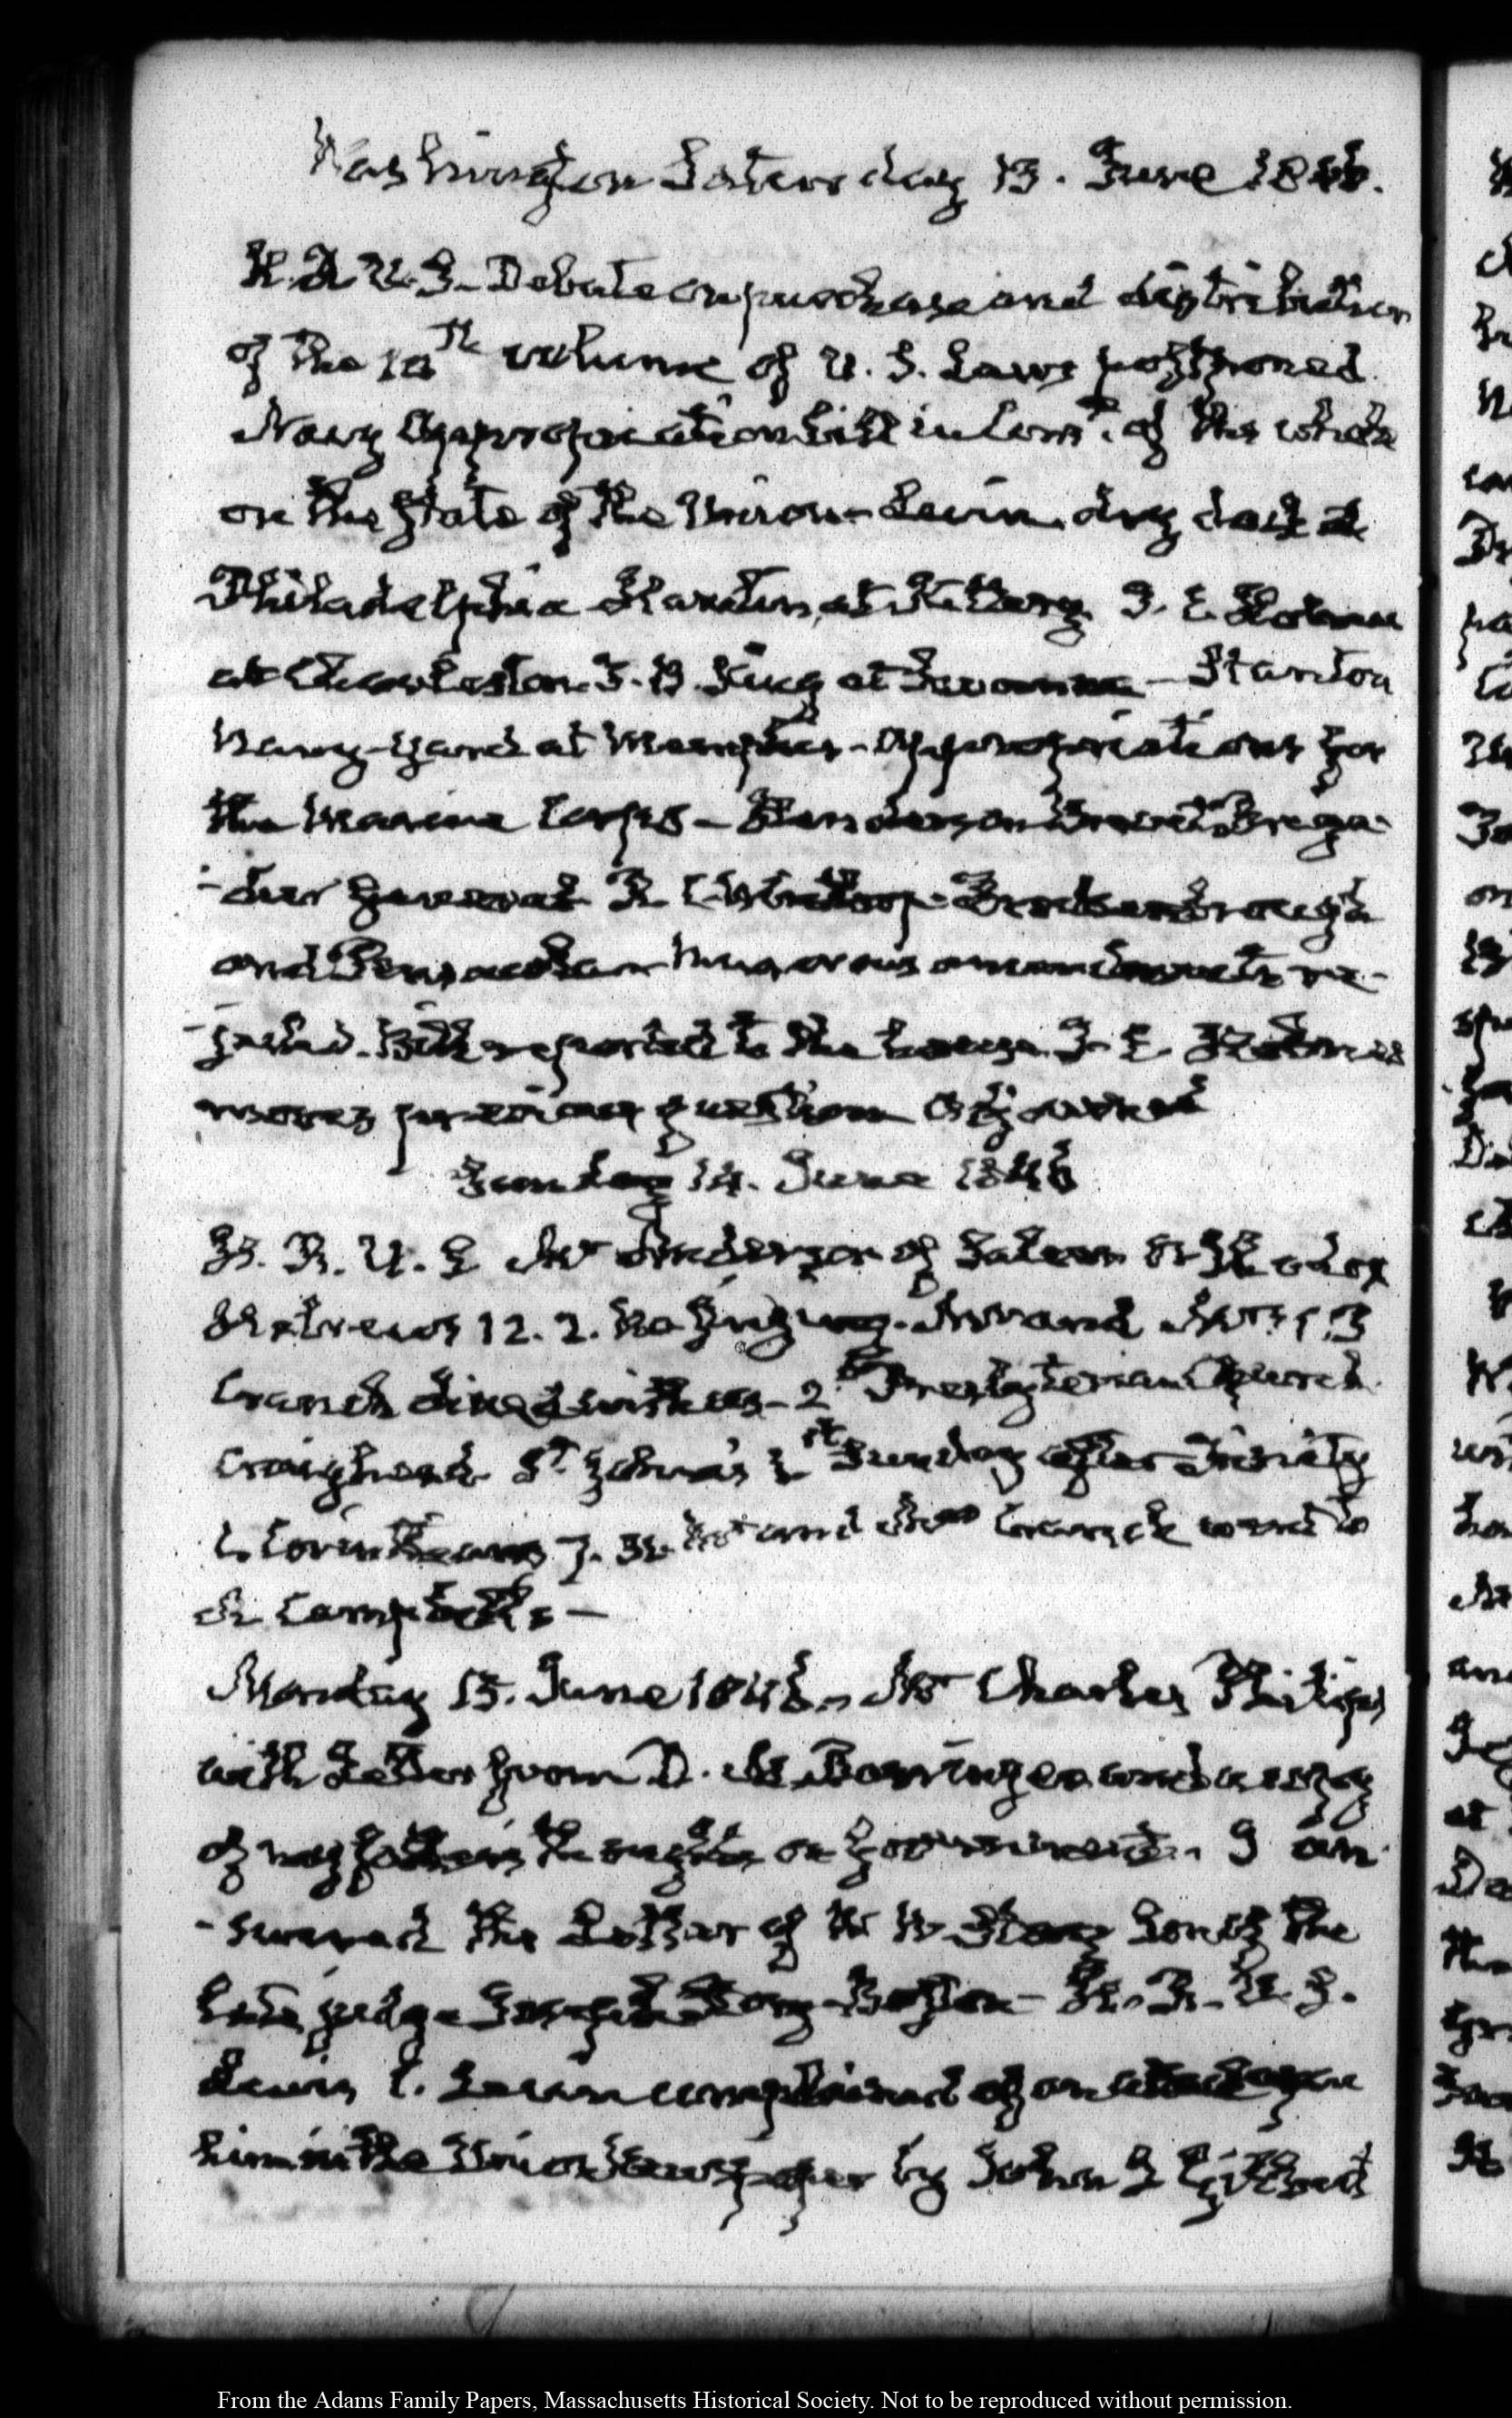 Washington Saturday 13. June 1846.
H. R. U. S. Debate on purchase and distribution
of the 10th volume of U. S. Laws postponed
Navy Appropriation bill in Comee. of the whole
on the State of the Union - Levin. dry dock at
Philadelphia at Kittery I. E. Holmes
at Charleston T. B. King at Savanna - Stanton
Navy-yard at Memphis - Appropriations for
the Marine Corps - Henderson Brevet Briga-
-dier General R. C. Winthrop - Brockenbrough
and amendments re-
-jected. Bill reported to the house. I. E. Holmes
moves previous question Adjourned
Sunday 14. June 1846
H. R. U. S Mr Anderson of Salem Orthodox
Hebrews 12. 2. Mr and Mrs
Cranch dined with us - 2d Presbyterian Church
Craighead St. John's 1st Sunday after Trinity
1. Corinthians 7. 31. Mr and Mrs Cranch went to
Dr Campbell's -
Monday 15. June 1846. Mr Charles Philips
with Letter from D. M. Barringer and
of my father's thoughts on government. I an-
-swered the Letter of W W Story Son of the
late judge Joseph Story Boston - H. R. U. S.
Lewis C. Levin complained of an attack upon
him in the Union Newspaper by John S